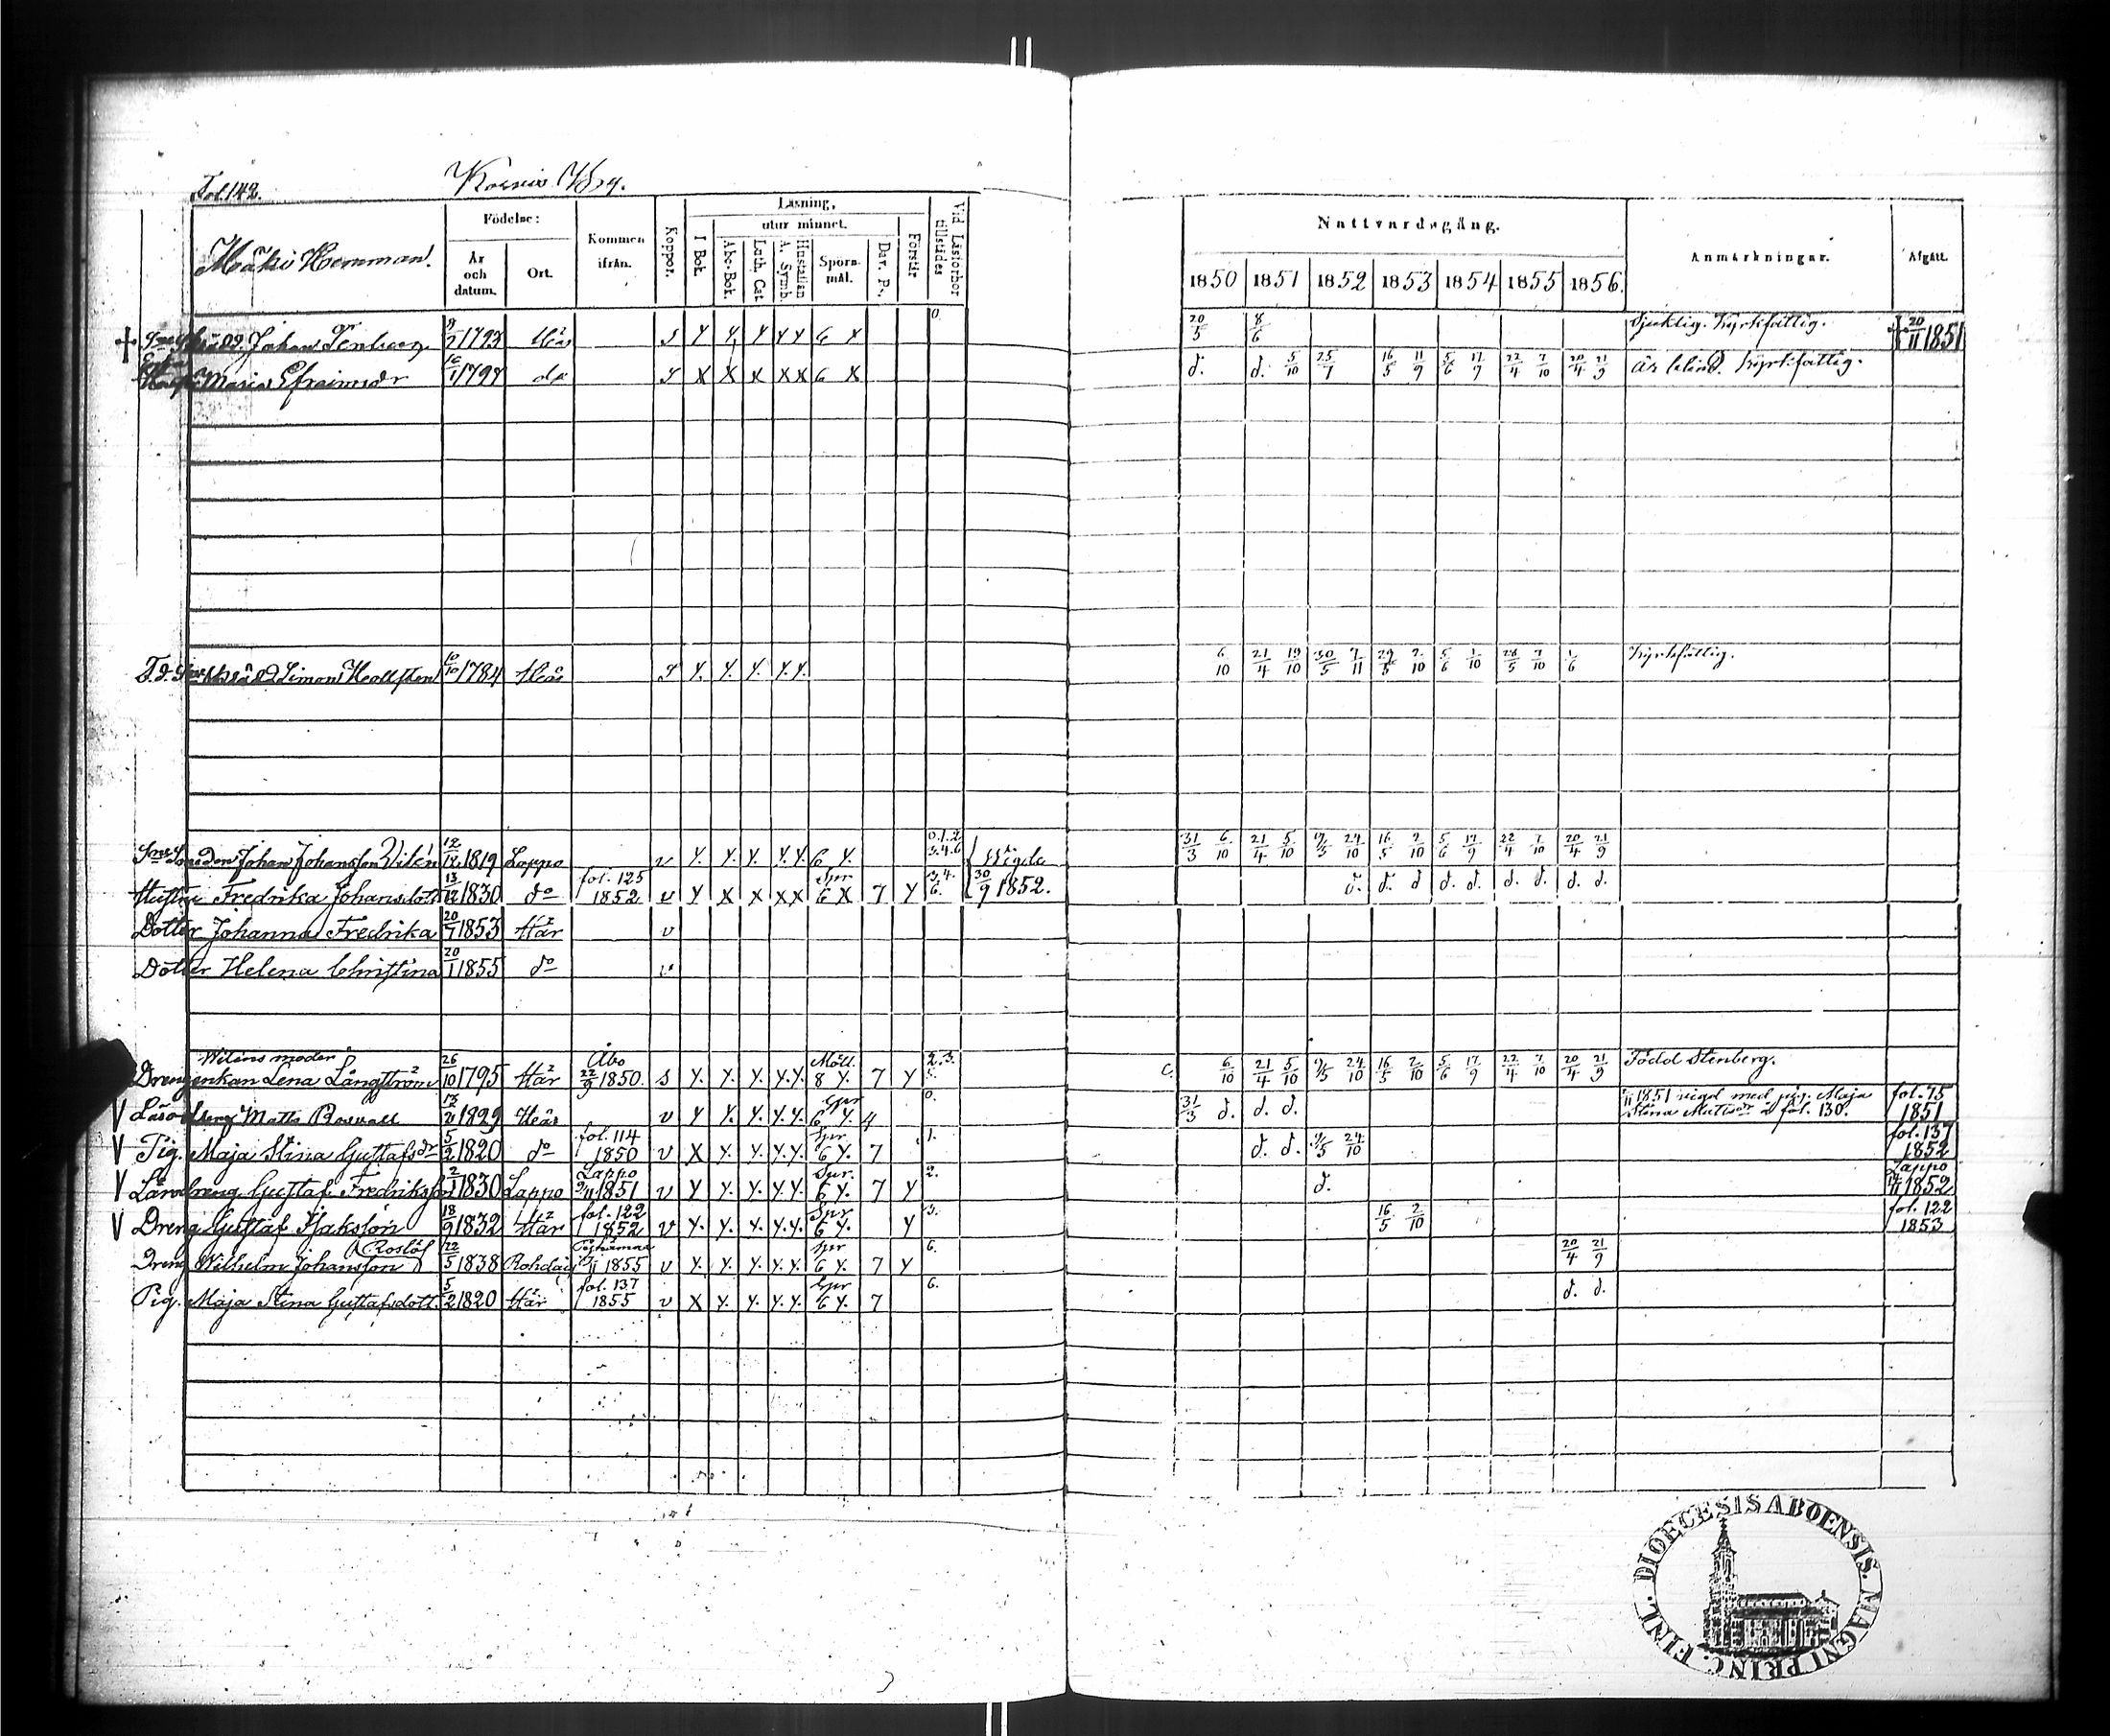 Fol. 142.
Mäki Hemman.
Födelse:
År och datum.
Ort.
Kommen ifrån.
Koppor.
Läsning,
utur minnet.
I Bok.
Abc-Bok.
Luth. Cat
A. Symb. Hustaflan
Spörs-mål.
Dav. Ps.
Förstår
Vid Läsförhör tillstädes
Nattvardsgång.
1850 1851 1852 1853 1854 1855 1856.
Anmärkningar.
Afgått.
Johan Stenberg 1793 Här S Y Y Y Y Y 6 Y 0. 20/5 8/6 Sjuklig. Kyrkfattig. 20/11 1851
Maria Efraimsdr 1797 do S X X X X X 6 X d. d. 5/10 25/7 16/5 11/9 5/6 17/9 22/4 7/10 20/4 21/9 är blind. Kyrkfattig.
Simon Hollsten 10/10 1784 Här S Y. Y. Y. Y. Y. 6/10 21/4 19/10 30/5 7/11 29/5 2/10 5/6 1/10 28/5 7/10 1/6 Kyrkfattig.
Johan Johansson Vilén 1819 Lappo v Y. Y. Y. Y. Y. 6 Y. 0.1.2. 3.4.6 Vigda 31/3 6/10 21/4 5/10 9/5 24/10 16/5 2/10 5/6 17/9 22/4 7/10 20/4 21/9
Hustru Fredrika Johansdott. 13/12 1830 do fol. 125 1852 v Y X X X X Spr 6 X 7 Y 3.4. 6. 30/9 1852. d. d. d d. d. d. d. d. d.
Dotter Johanna Fredrika 20/7 1853 Här v
Dotter Helena Christina 20/1 1855 do v.
Wilens moder
Drengenkan Lena Långström 26/10 1795 Här Åbo 22/9 1850. s Y. Y. Y. Y. Y. Möll. 8 Y. 7 Y 2.3. 5. C. 6/10 21/4 5/10 9/5 24/10 16/5 2/10 5/6 17/9 22/4 7/10 20/4 21/9 Född Stenberg.
V Matts Rosvall 1829 Här v Y Y. Y. Y. Y. Spr 6 Y. 4 0. 31/3 d. d. d. 1851 vigd med pig. Maja Stina Matts dr å fol. 130. fol. 75 1851
V Pig. Maja Stina Gustafs dr 5/2 1820 do fol. 114 1850 v X Y. Y. Y. Y. Spr 6 Y. 7 1. d. d. 9/5 24/10 fol. 137 1852
V dreng Gustaf Fredriksson 2/1 1830 Lappo Lappo 1851 v Y Y. Y. Y. Y. Spr. 6 Y. 7 Y 2. d. Lappo 1852
V Dreng Gustaf Isaksson 18/9 1832 Här fol. 122 1852 v Y. Y. Y. Y. Y. Spr 6 Y. Y 3. 16/5 2/10 fol. 122 1853
Dreng Wilhelm Johansson (Roslöf) 22/5 1838 1855 v Y. Y. Y. Y. Y. Spr 6 Y. 7 Y 6. 20/4 21/9
Pig. Maja Stina Gustafsdott. 5/2 1820 Här fol. 137 1855 v X Y. Y. Y. Y. Spr 6 Y. 7 6. d. d.
DIOECESIS ABOENSIS. MAGNI PRINC. FINL.